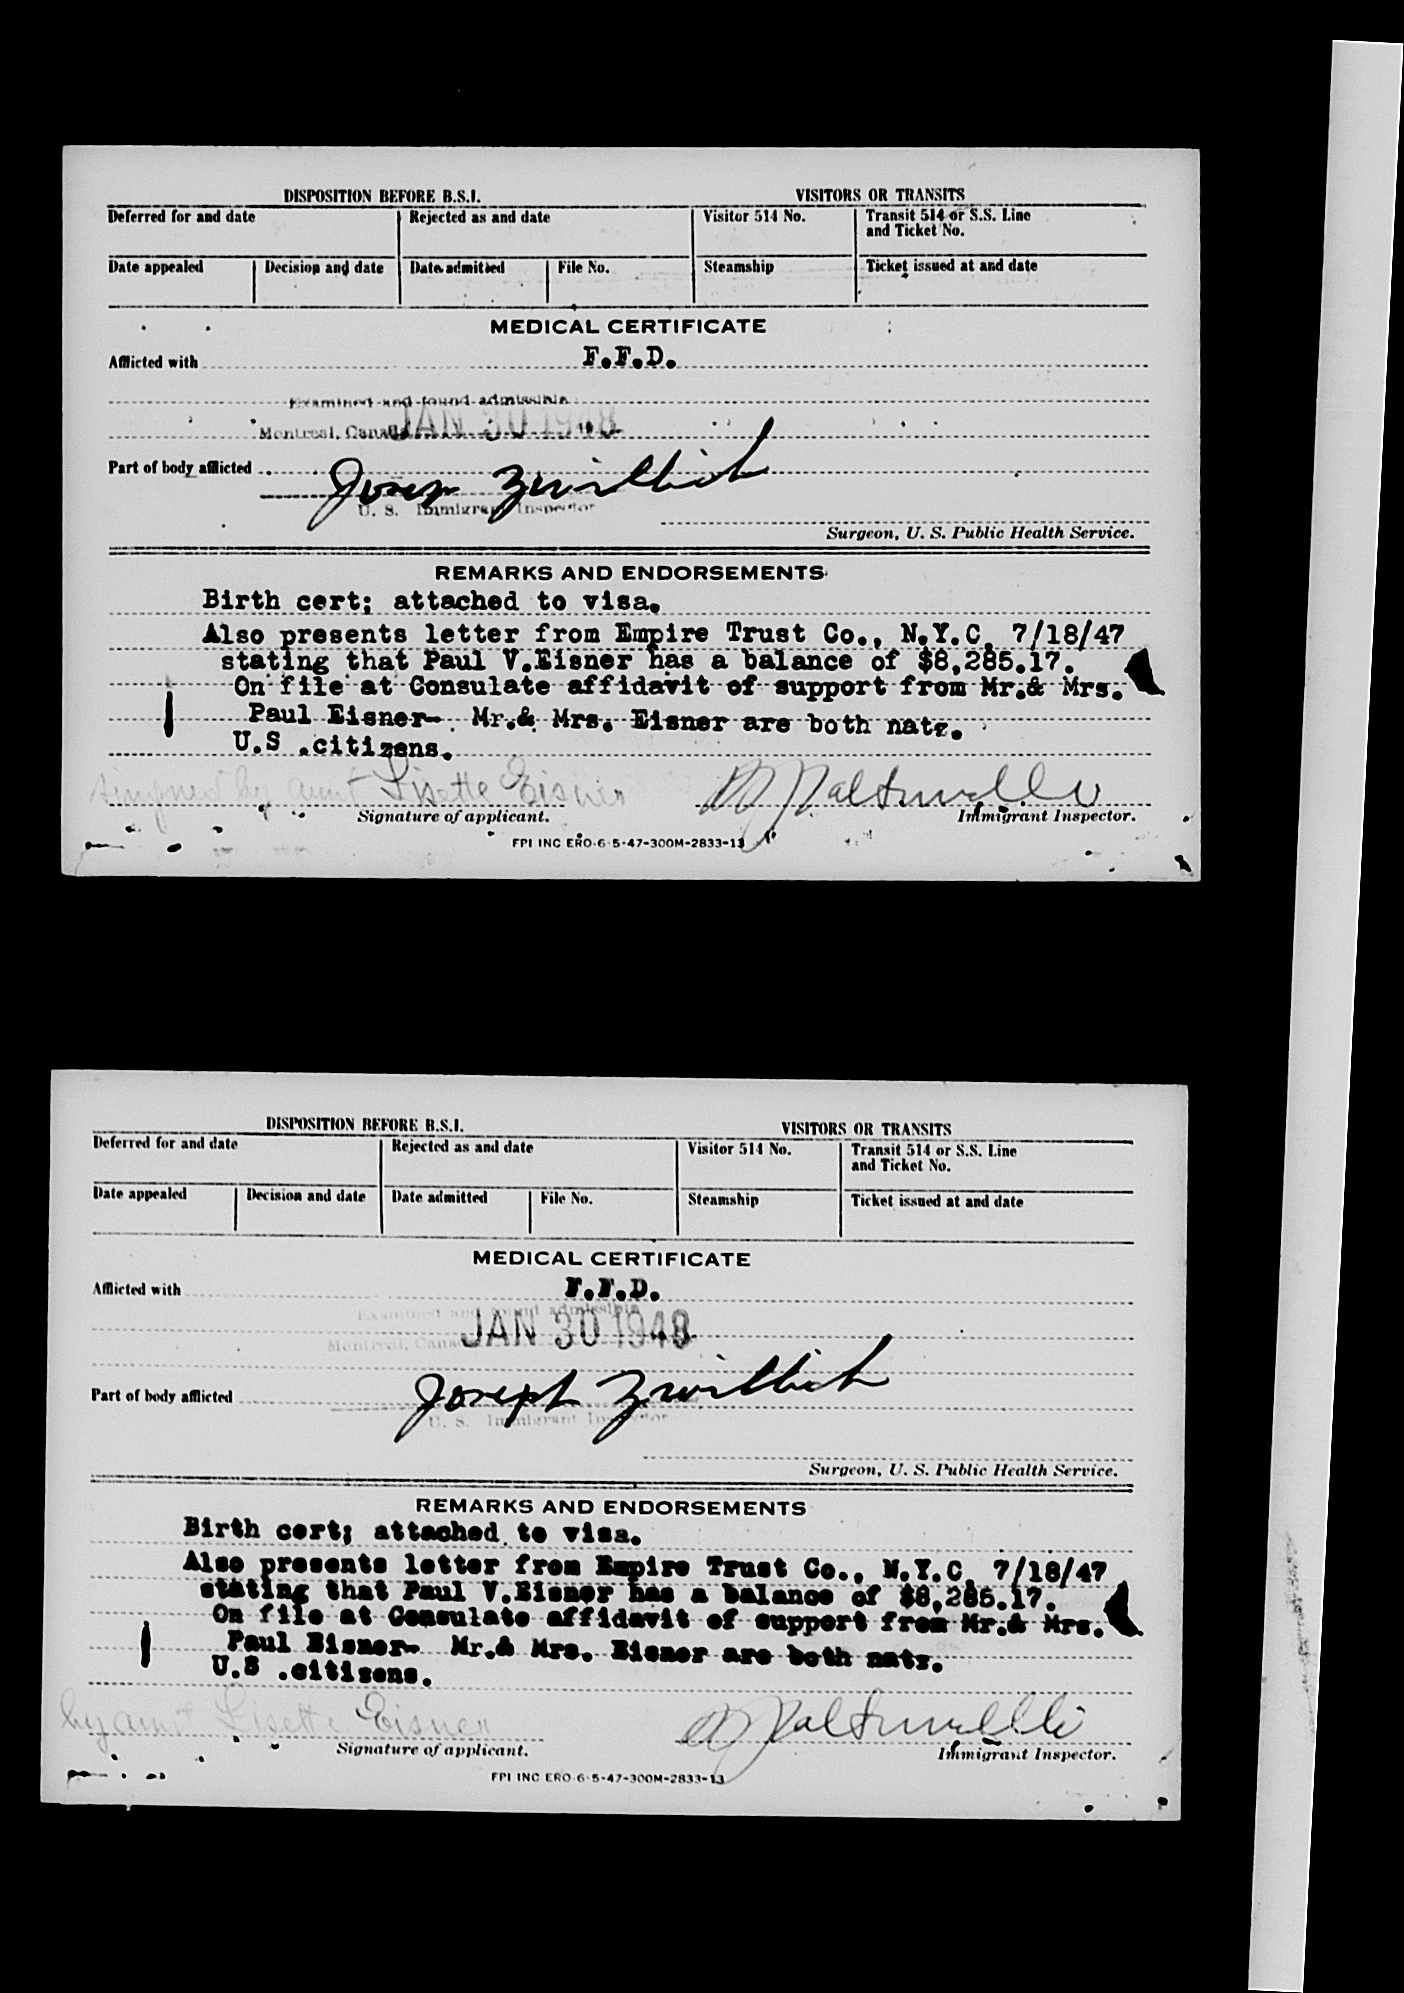 DISPOSITION BEFORE B.S.I. VISITORS OR TRANSITS
Deferred for and date Rejected as and date Visitor 514 No. Transit 514 or S.S. Line
and Ticket No.
Date appealed Decision and date Date admitted File No. Steamship Ticket issued at and date
MEDICAL CERTIFICATE
Afflicted with F.F.D.
Examined and found admissible
Montreal, Canada JAN 30 1948
Part of body afflicted
Joseph Zwillich
U. S. Immigrant Inspector
Surgeon, U. S. Public Health Service.
REMARKS AND ENDORSEMENTS
Birth cert; attached to visa.
Also presents letter from Empire Trust Co., N.Y.C. 7/18/47
stating that Paul V.Eisner has a balance of $8,285.17.
On file at Consulate affidavit of support from Mr.& Mrs.
Paul Eisner- Mr.& Mrs. Eisner are both natz.
U.S .citizens.
by aunt Lisette Eisner
Signature of applicant. Immigrant Inspector.
FPI INC ERO-6-5-47-300M-2833-13
DISPOSITION BEFORE B.S.I. VISITORS OR TRANSITS
Deferred for and date Rejected as and date Visitor 514 No. Transit 514 or S.S. Line
and Ticket No.
Date appealed Decision and date Date admitted File No. Steamship Ticket issued at and date
MEDICAL CERTIFICATE
Afflicted with F.F.D.
Examined and found admissible
Montreal, Canada JAN 30 1948
Part of body afflicted
Joseph Zwillich
U. S. Immigrant Inspector
Surgeon, U. S. Public Health Service.
REMARKS AND ENDORSEMENTS
Birth cert; attached to visa.
Also presents letter from Empire Trust Co., N.Y.C. 7/18/47
stating that Paul V.Eisner has a balance of $8,285.17.
On file at Consulate affidavit of support from Mr.& Mrs.
Paul Eisner- Mr.& Mrs. Eisner are both natz.
U.S .citizens.
by aunt Lisette Eisner
Signature of applicant. Immigrant Inspector.
FPI INC ERO-6-5-47-300M-2833-13